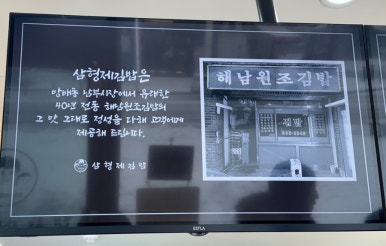 삼형제김밥은
방배동 남부시장에서 유래한
40년 전통 해남원조김밥의
그 맛 그대로 정성을 다해 고객에게
제공해 드립니다.
삼형제김밥
해남원조김밥
김밥